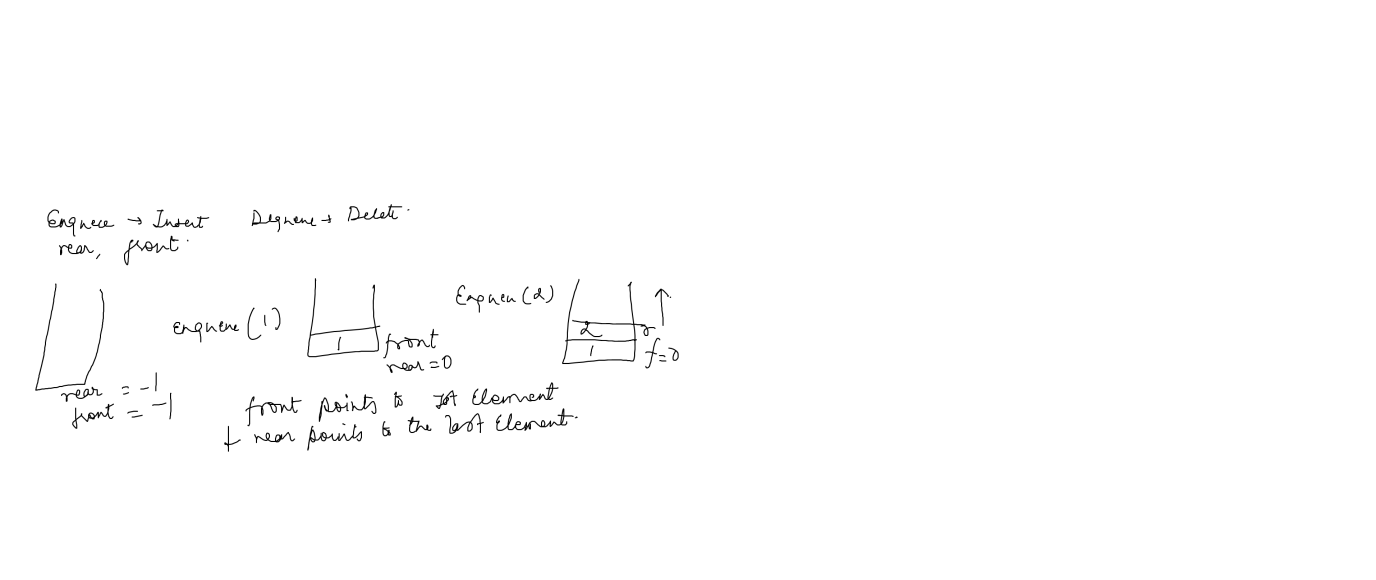 Enquece → Insert Dequene → Delete.
rear, front.
enquene (1)
1
front
rear = 0
Enqueu (2)
2
1
r
f = 0
rear = -1
front = -1
front points to 1st Element
+ rear points to the last Element.